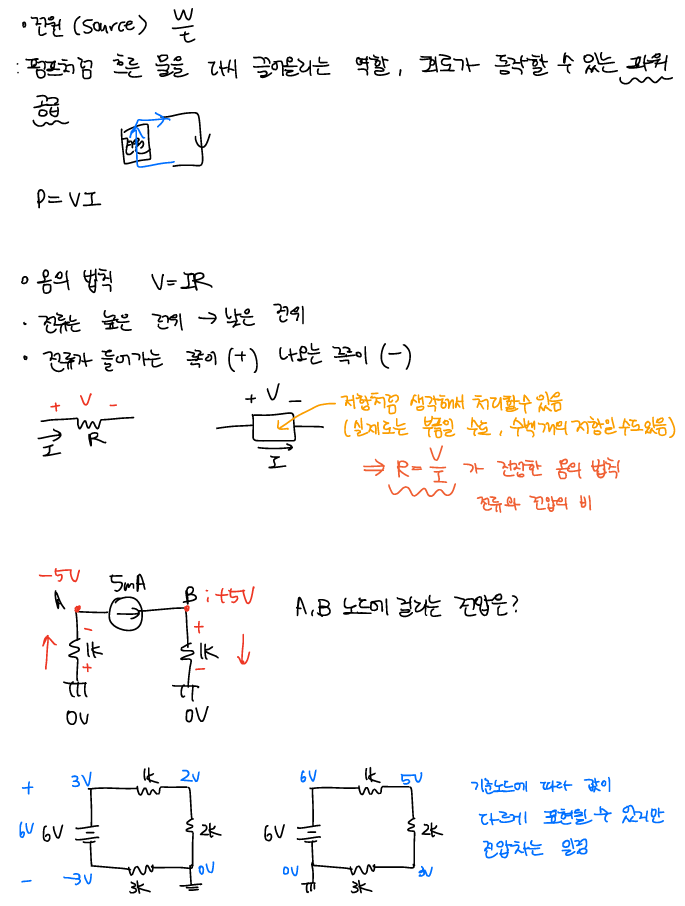 • 전원 (Source) W/t
: 펌프처럼 흐른 물을 다시 끌어올리는 역할, 회로가 동작할 수 있는 파워
공급
전원
P = VI
• 옴의 법칙 V = IR
• 전류는 높은 전위 → 낮은 전위
• 전류가 들어가는 쪽이 (+) 나오는 쪽이 (-)
+ V -
I R
+ V -
I
저항처럼 생각해서 처리할수 있음
(실제로는 부품일 수도, 수백개의 저항일수도있음)
⇒ R = V/I 가 진정한 옴의 법칙
전류와 전압의 비
-5V
A 5mA B : +5V
- 1K +
+ 1K -
0V 0V
A, B 노드에 걸리는 전압은?
+ 3V 1K 2V
6V 6V 2K
- -3V 3K 0V
6V 1K 5V
6V 2K
0V 3K 3V
기준노드에 따라 값이
다르게 표현될 수 있지만
전압차는 일정